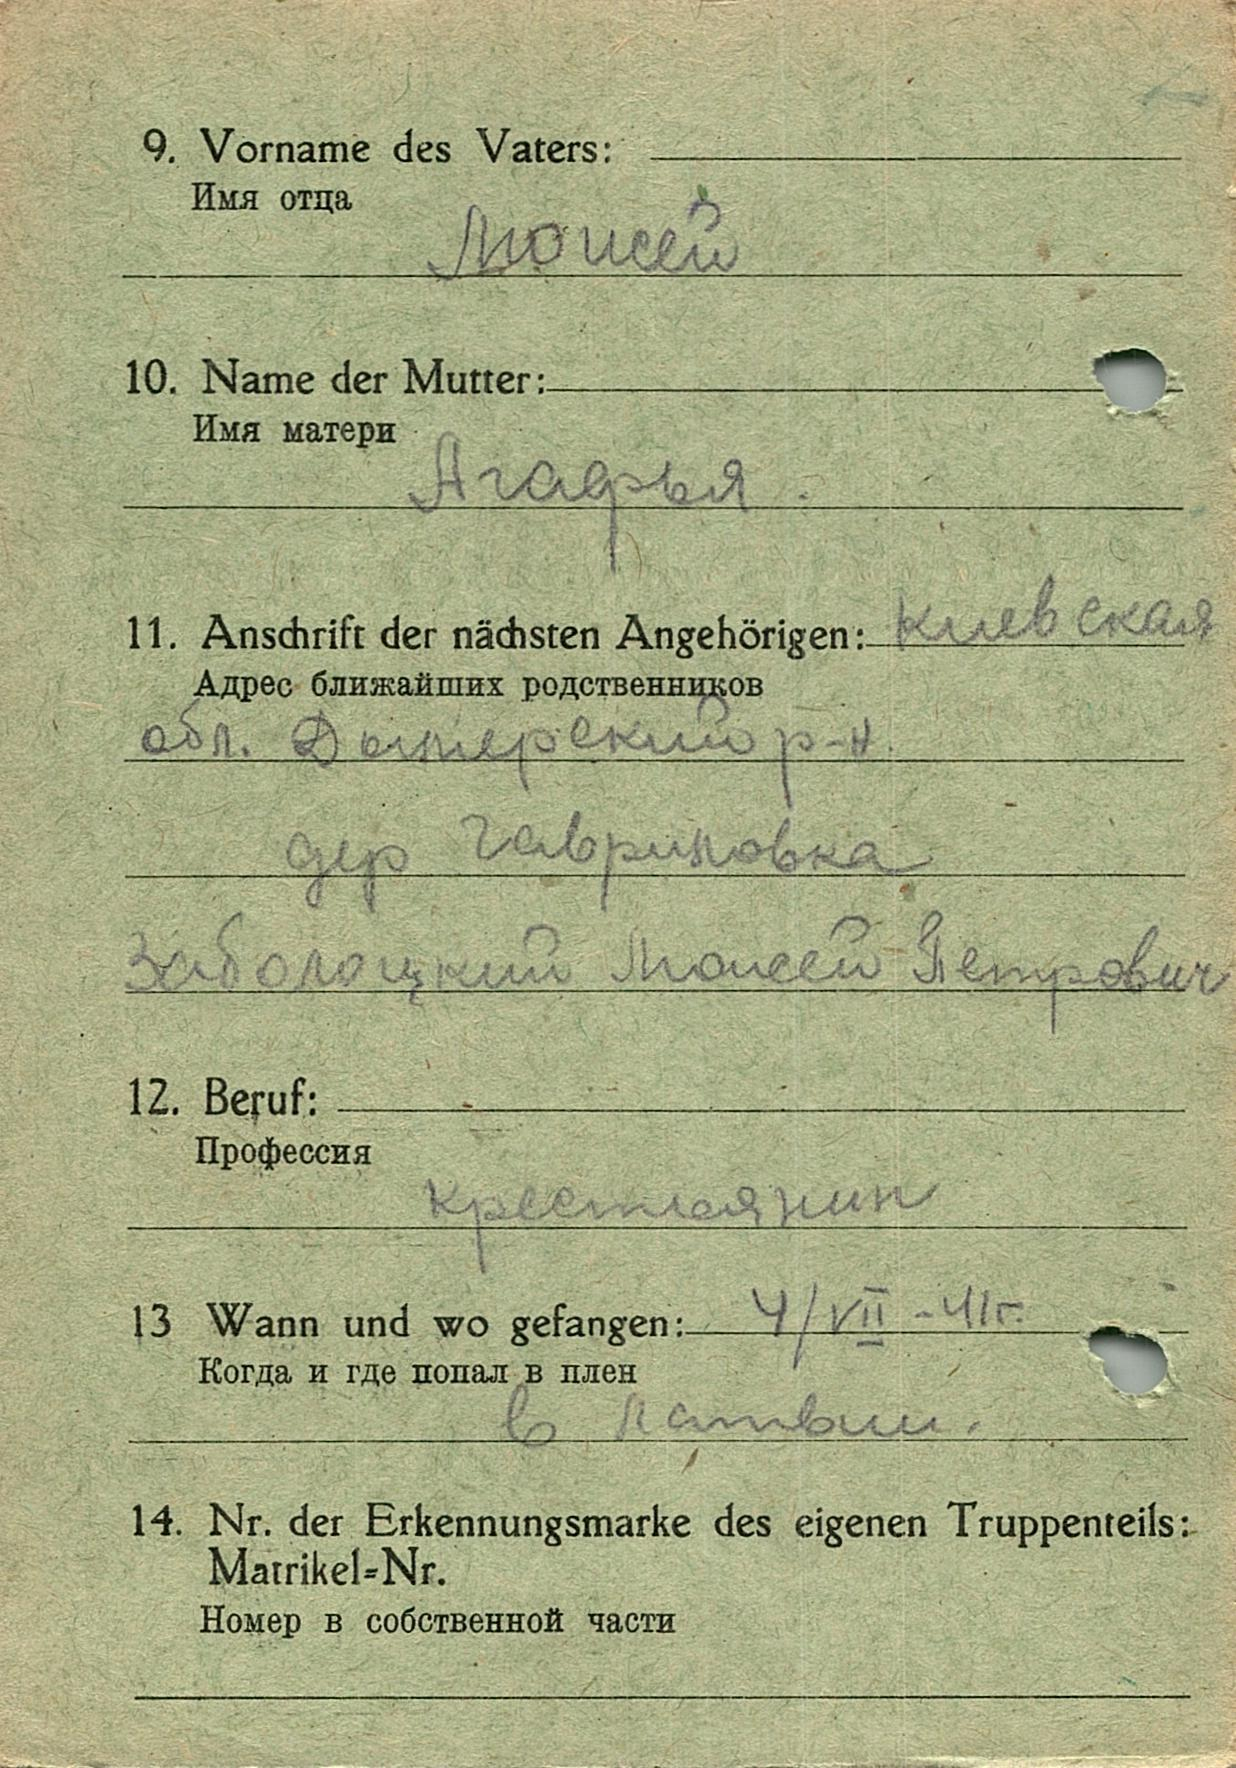 9. Vorname des Vaters:
Имя отца
Моисей
10. Name der Mutter:
Имя матери
Агафья.
11. Anschrift der nächsten Angehörigen: Киевская
Адрес ближайших родственников
обл. Дымерский р-н.
дер Гавриловка
Заболоцкий Моисей Петрович
12. Beruf:
Профессия
крестьянин
13 Wann und wo gefangen: 4/VII-41г.
Когда и где попал в плен
в Латвии.
14. Nr. der Erkennungsmarke des eigenen Truppenteils:
Matrikel=Nr.
Номер в собственной части